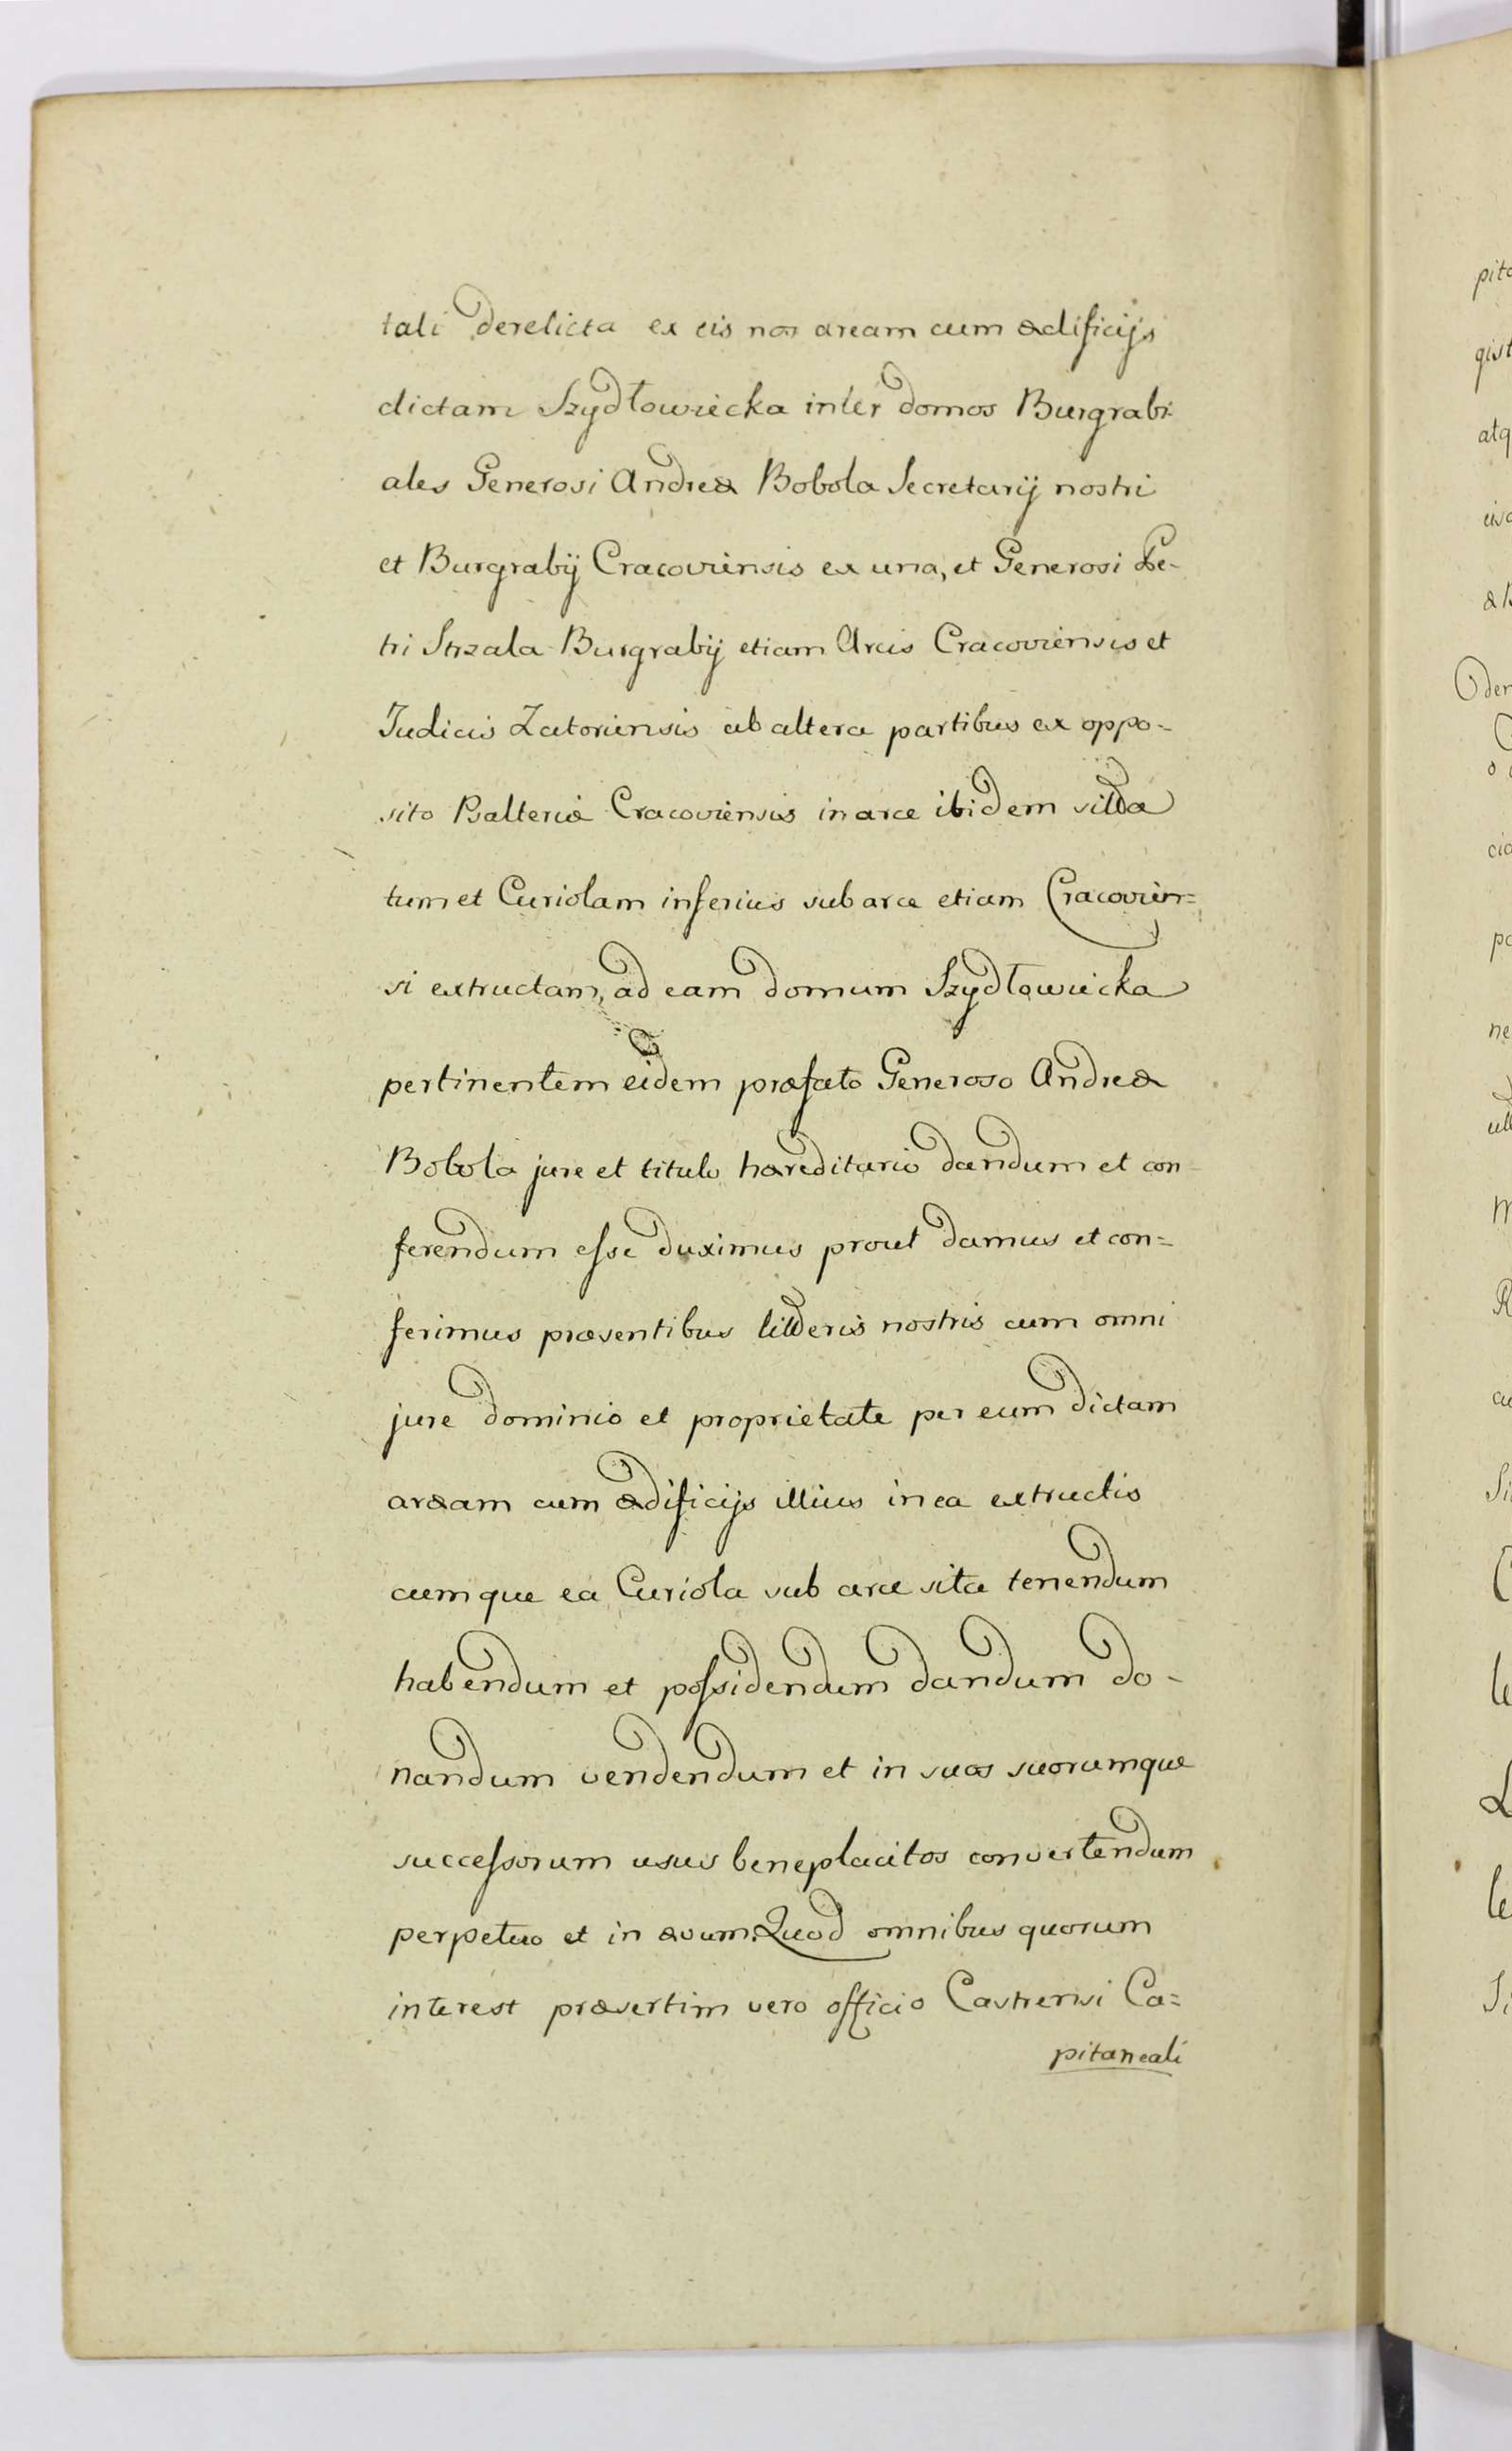 tali derelicta ex eis nos aream cum ædificijs
dictam Szydłowiecka inter domos Burgrabi-
ales Generosi Andreæ Bobola Secretarij nostri
et Burgrabij Cracoviensis ex una, et Generosi Pe-
tri Strzala Burgrabij etiam Arcis Cracoviensis et
Judicis Zatoriensis ab altera partibus ex oppo-
sito Psalteriæ Cracoviensis in arce ibidem sitta
tum et Curiolam inferius sub arce etiam Cracovien=
si extructam, ad eam domum Szydłowiecka
pertinentem eidem præfato Generoso Andreæ
Bobola jure et titulo hæreditario dandum et con
ferendum esse duximus prout damus et con=
ferimus præsentibus litteris nostris cum omni
jure dominio et proprietate per eum dictam
aræam cum ædificijs illius in ea extructis
cumque ea Curiola sub arce sita tenendum
habendum et possidendum dandum do-
nandum vendendum et in suos suorumque
successorum usus beneplacitos convertendum
perpetuo et in ævum. Quod omnibus quorum
interest præsertim vero officio Castrensi Ca=
pitaneali